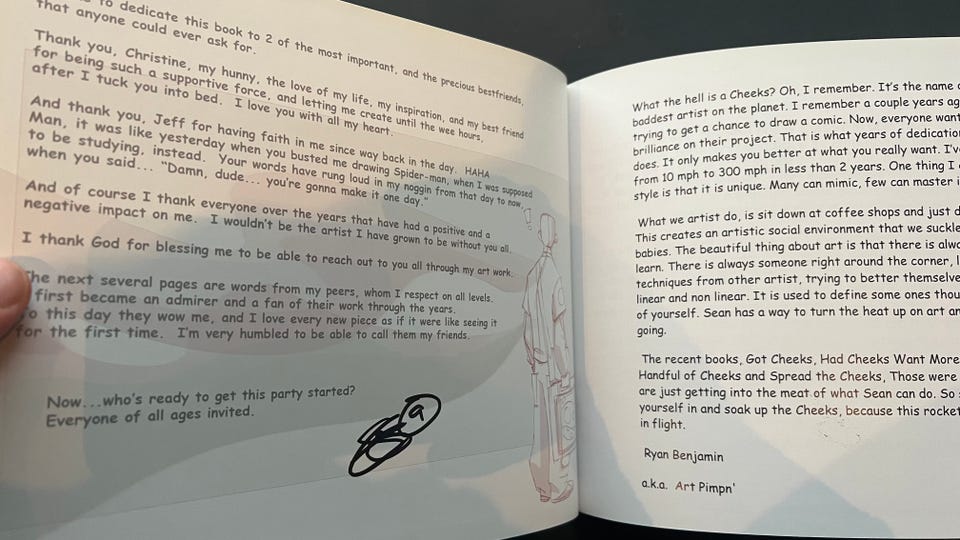 to dedicate this book to 2 of the most important, and the precious bestfriends,
that anyone could ever ask for.
Thank you, Christine, my hunny, the love of my life, my inspiration, and my best friend
for being such a supportive force, and letting me create until the wee hours,
after I tuck you into bed. I love you with all my heart.
And thank you, Jeff for having faith in me since way back in the day. HAHA
Man, it was like yesterday when you busted me drawing Spider-man, when I was supposed
to be studying, instead. Your words have rung loud in my noggin from that day to now,
when you said... "Damn, dude... you're gonna make it one day."
And of course I thank everyone over the years that have had a positive and a
negative impact on me. I wouldn't be the artist I have grown to be without you all.
I thank God for blessing me to be able to reach out to you all through my art work.
The next several pages are words from my peers, whom I respect on all levels.
first became an admirer and a fan of their work through the years.
To this day they wow me, and I love every new piece as if it were like seeing it
for the first time. I'm very humbled to be able to call them my friends.
Now...who's ready to get this party started?
Everyone of all ages invited.
What the hell is a Cheeks? Oh, I remember. It's the name
baddest artist on the planet. I remember a couple years
trying to get a chance to draw a comic. Now, everyone
brilliance on their project. That is what years of
does. It only makes you better at what you really want.
from 10 mph to 300 mph in less than 2 years. One thing I
style is that it is unique. Many can mimic, few can master
What we artist do, is sit down at coffee shops and just
This creates an artistic social environment that we
babies. The beautiful thing about art is that there is
learn. There is always someone right around the corner,
techniques from other artist, trying to better
linear and non linear. It is used to define some ones
of yourself. Sean has a way to turn the heat up on art
going.
The recent books, Got Cheeks, Had Cheeks Want More
Handful of Cheeks and Spread the Cheeks, Those were
are just getting into the meat of what Sean can do. So
yourself in and soak up the Cheeks, because this
in flight.
Ryan Benjamin
a.k.a. Art Pimpn'